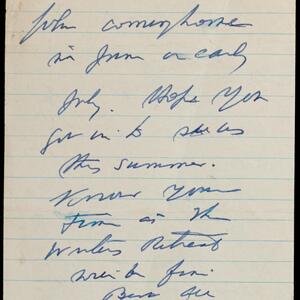 John coming home
in June or early
July. Hope you
get in to see us
this summer.
Know your
time at the
Writers Retreat
will be fine.
Best